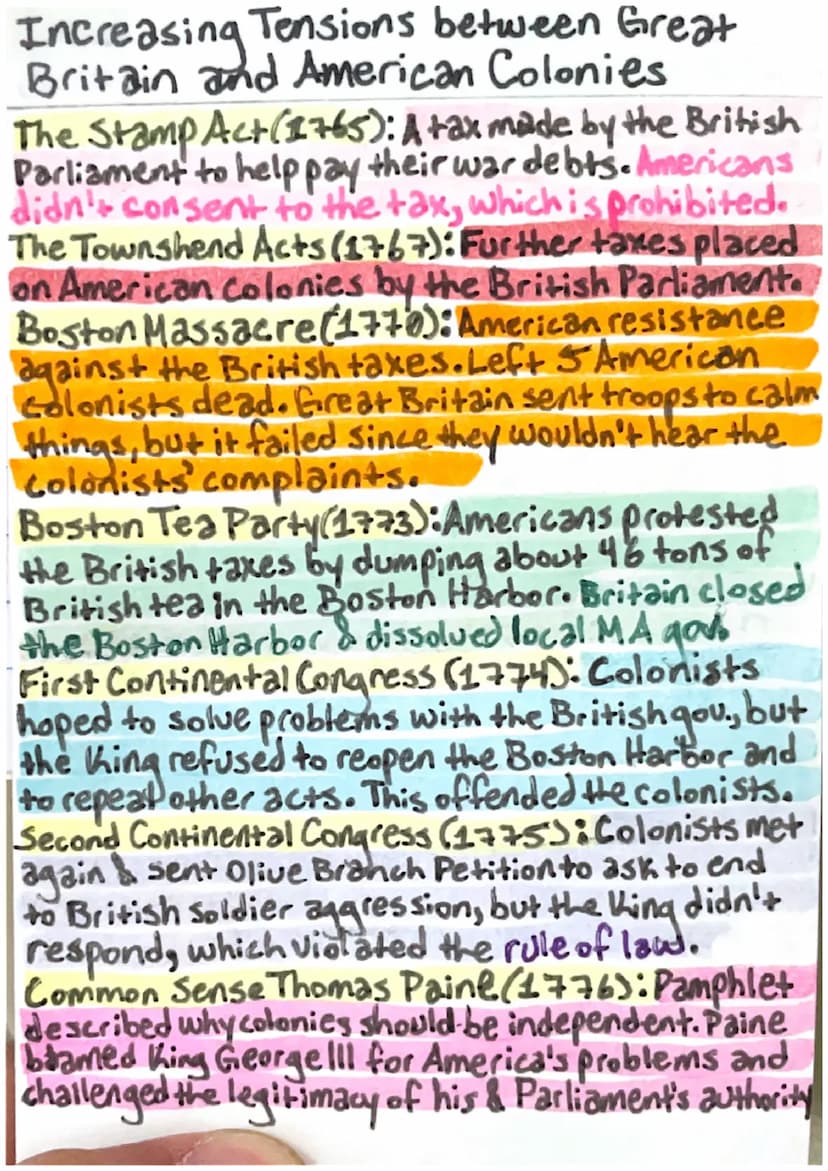 Increasing Tensions between Great
Britain and American Colonies
The Stamp Act (1765): A tax made by the British
Parliament to help pay their war debts. Americans
didn't consent to the tax, which is prohibited.
The Townshend Acts (1767): Further taxes placed
on American colonies by the British Parliament.
Boston Massacre (1770): American resistance
against the British taxes. Left 5 American
colonists dead. Great Britain sent troops to calm
things, but it failed since they wouldn't hear the
colonists' complaints.
Boston Tea Party (1773): Americans protested
the British taxes by dumping about 46 tons of
British tea in the Boston Harbor. Britain closed
the Boston Harbor & dissolved local MA gov.
First Continental Congress (1774): Colonists
hoped to solve problems with the British gov., but
the King refused to reopen the Boston Harbor and
to repeal other acts. This offended the colonists.
Second Continental Congress (1775): Colonists met
again & sent Olive Branch Petition to ask to end
to British soldier aggression, but the King didn't
respond, which violated the rule of law.
Common Sense Thomas Paine (1776): Pamphlet
described why colonies should be independent. Paine
blamed King George III for America's problems and
challenged the legitimacy of his & Parliament's authority